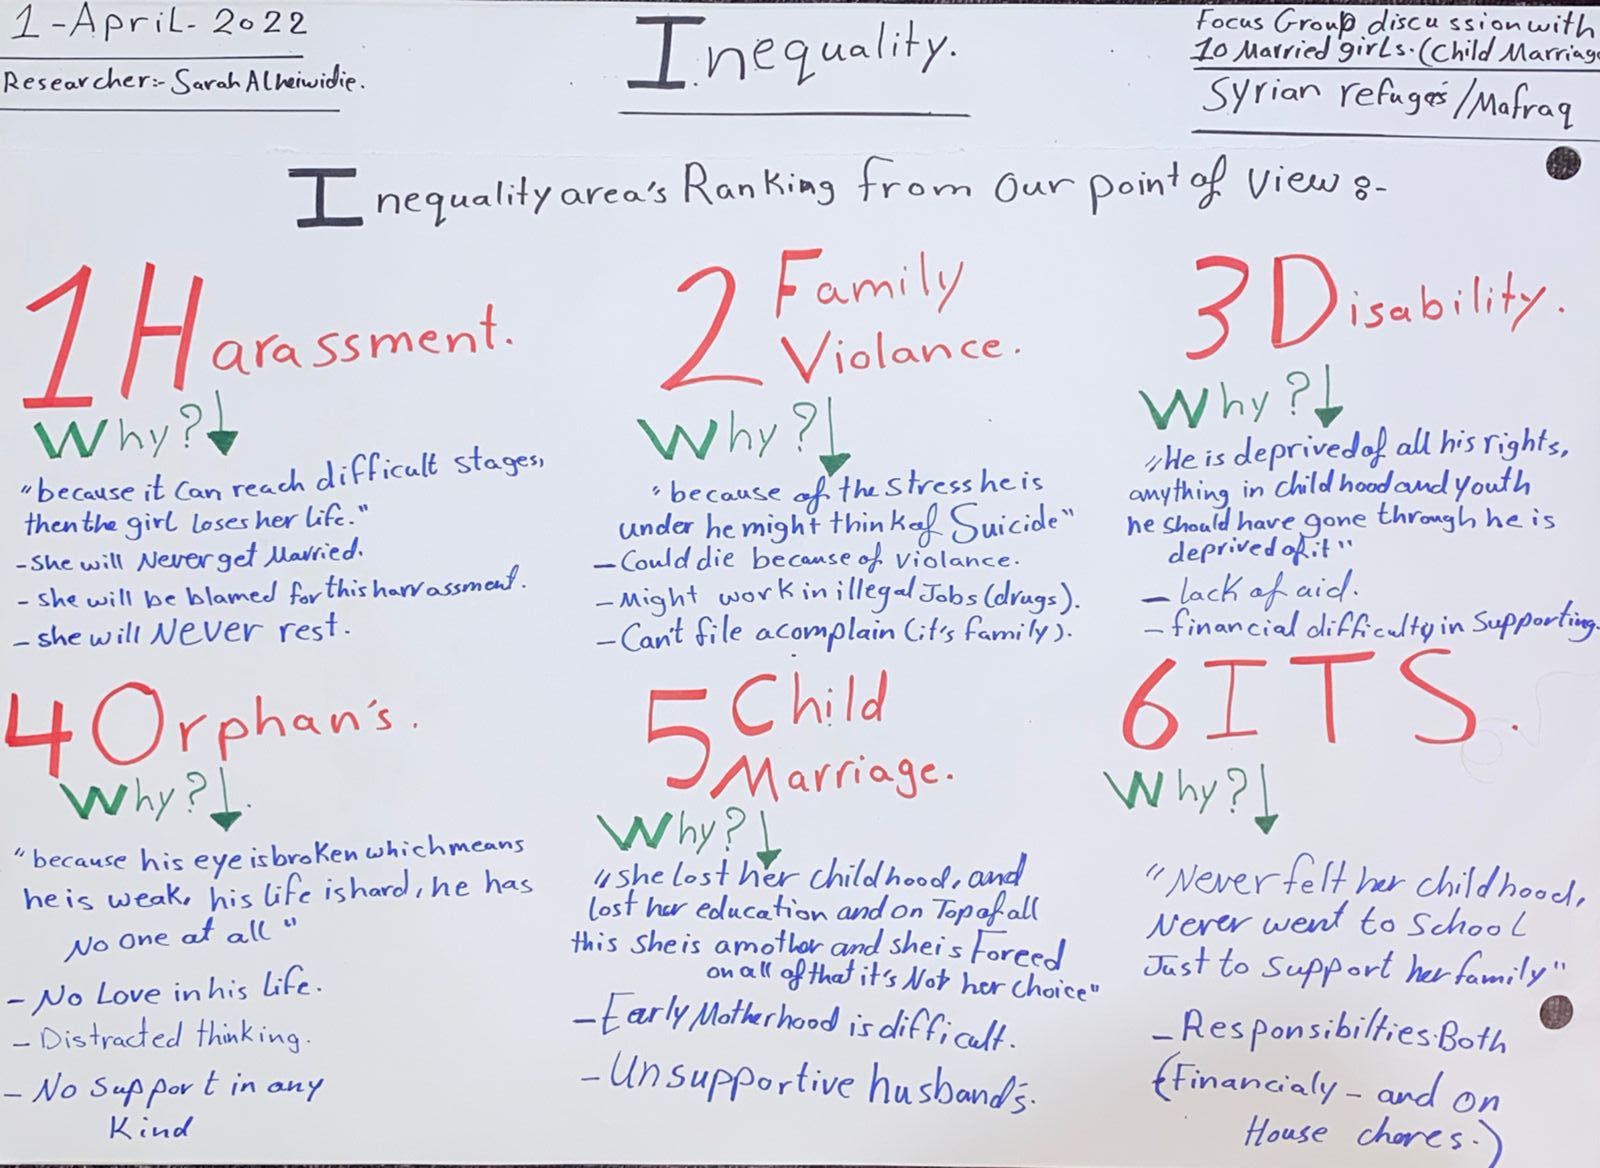 1-April-2022
Researcher:- Sarah Alheiwidie.
Inequality.
Focus Group discussion with
10 Married girls. (Child Marriage
Syrian refuge's/Mafraq
Inequality area's Ranking from our point of view :-
1 Harassment.
Why?
"because it can reach difficult stages,
then the girl loses her life."
- she will Never get Married.
- she will be blamed for this harrassment.
- she will Never rest.
2 Family
Violance.
Why?
"because of the stress he is
under he might think of Suicide"
- Could die because of violance.
- Might work in illegal Jobs (drugs).
- Can't file a complain (it's family).
3 Disability.
Why?
"He is deprived of all his rights,
anything in childhood and youth
he should have gone through he is
deprived of it"
- lack of aid.
- financial difficulty in supporting.
4 Orphan's.
Why?
"because his eye is broken which means
he is weak, his life is hard, he has
No one at all"
- No Love in his life.
- Distracted thinking.
- No support in any
Kind
5 Child
Marriage.
Why?
"she lost her childhood, and
lost her education and on Top of all
this she is a mother and she is Forced
on all of that it's Not her choice"
- Early Motherhood is difficult.
- Unsupportive husband's.
6 ITS.
Why?
"Never felt her childhood,
Never went to School
Just to support her family"
- Responsibilties. Both
(Financialy - and on
House chores.)